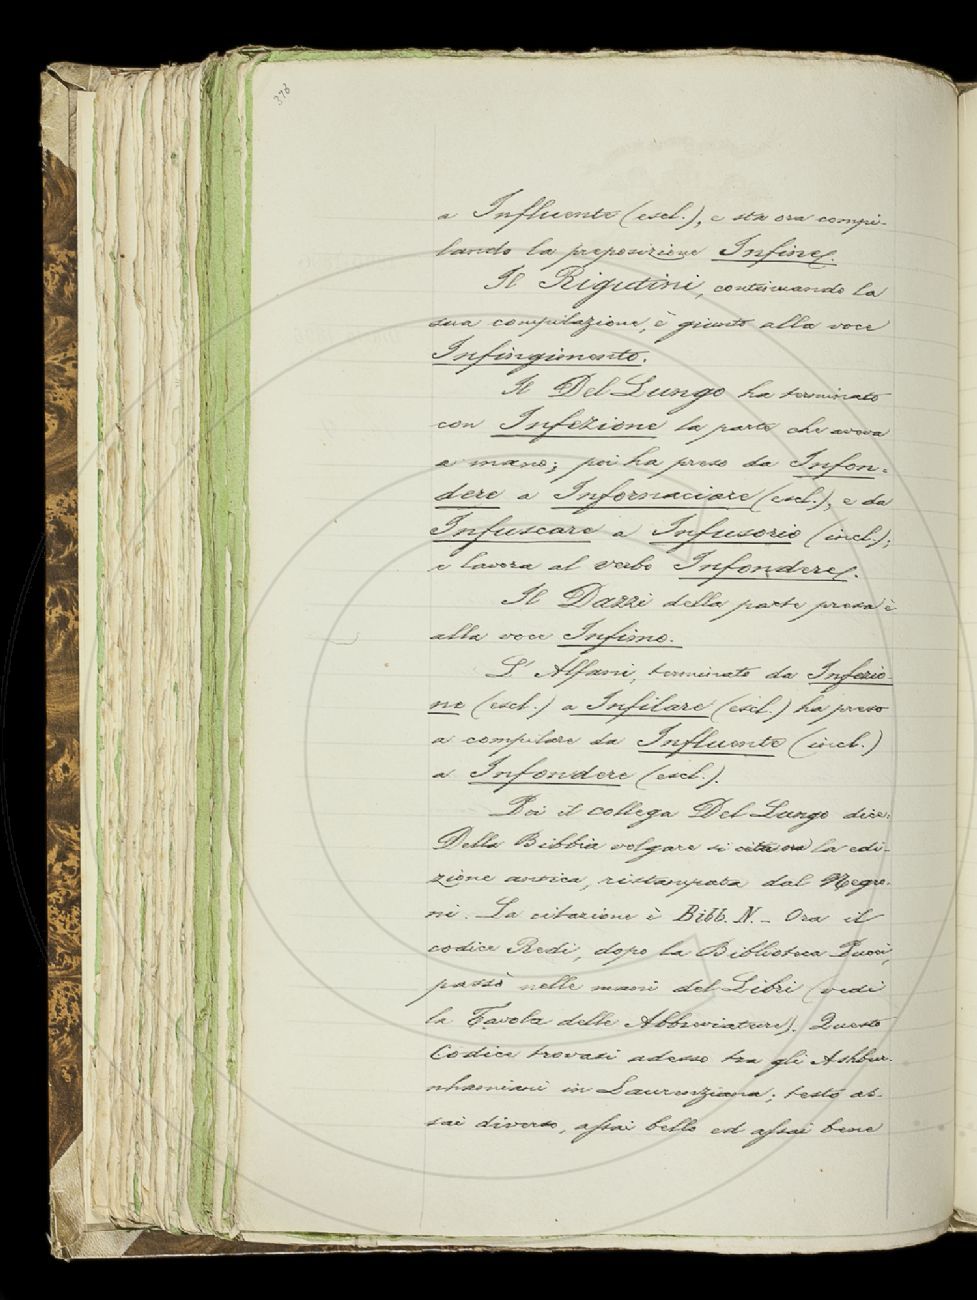 378
a Influente (escl.), e sta ora compi-
lando la preposizione Infine.
Il Rigutini, continuando la
sua compilazione, è giunto alla voce
Infingimento.
Il Del Lungo ha terminato
con Infezione la parte che aveva
a mano; poi ha preso da Infon-
dere a Infornaciare (escl.), e da
Infuscare a Infusorio (incl.);
e lavora al verbo Infondere.
Il Dazzi della parte presa è
alla voce Infimo.
L'Alfani, terminato da Infezio-
ne (escl.) a Infilare (escl.) ha preso
a compilare da Influente (incl.)
a Infondere (escl.).
Poi il collega Del Lungo dice:
Della Bibbia volgare si cita ora la edi-
zione antica, ristampata dal Negro-
ni. La citazione è Bibb. N. - Ora il
codice Redi, dopo la Biblioteca Pucci,
passò nelle mani del Libri (vedi
la Tavola delle Abbreviature). Questo
Codice trovasi adesso tra gli Ashbur-
nhamiani in Laurenziana; testo as-
sai diverso, assai bello ed assai bene